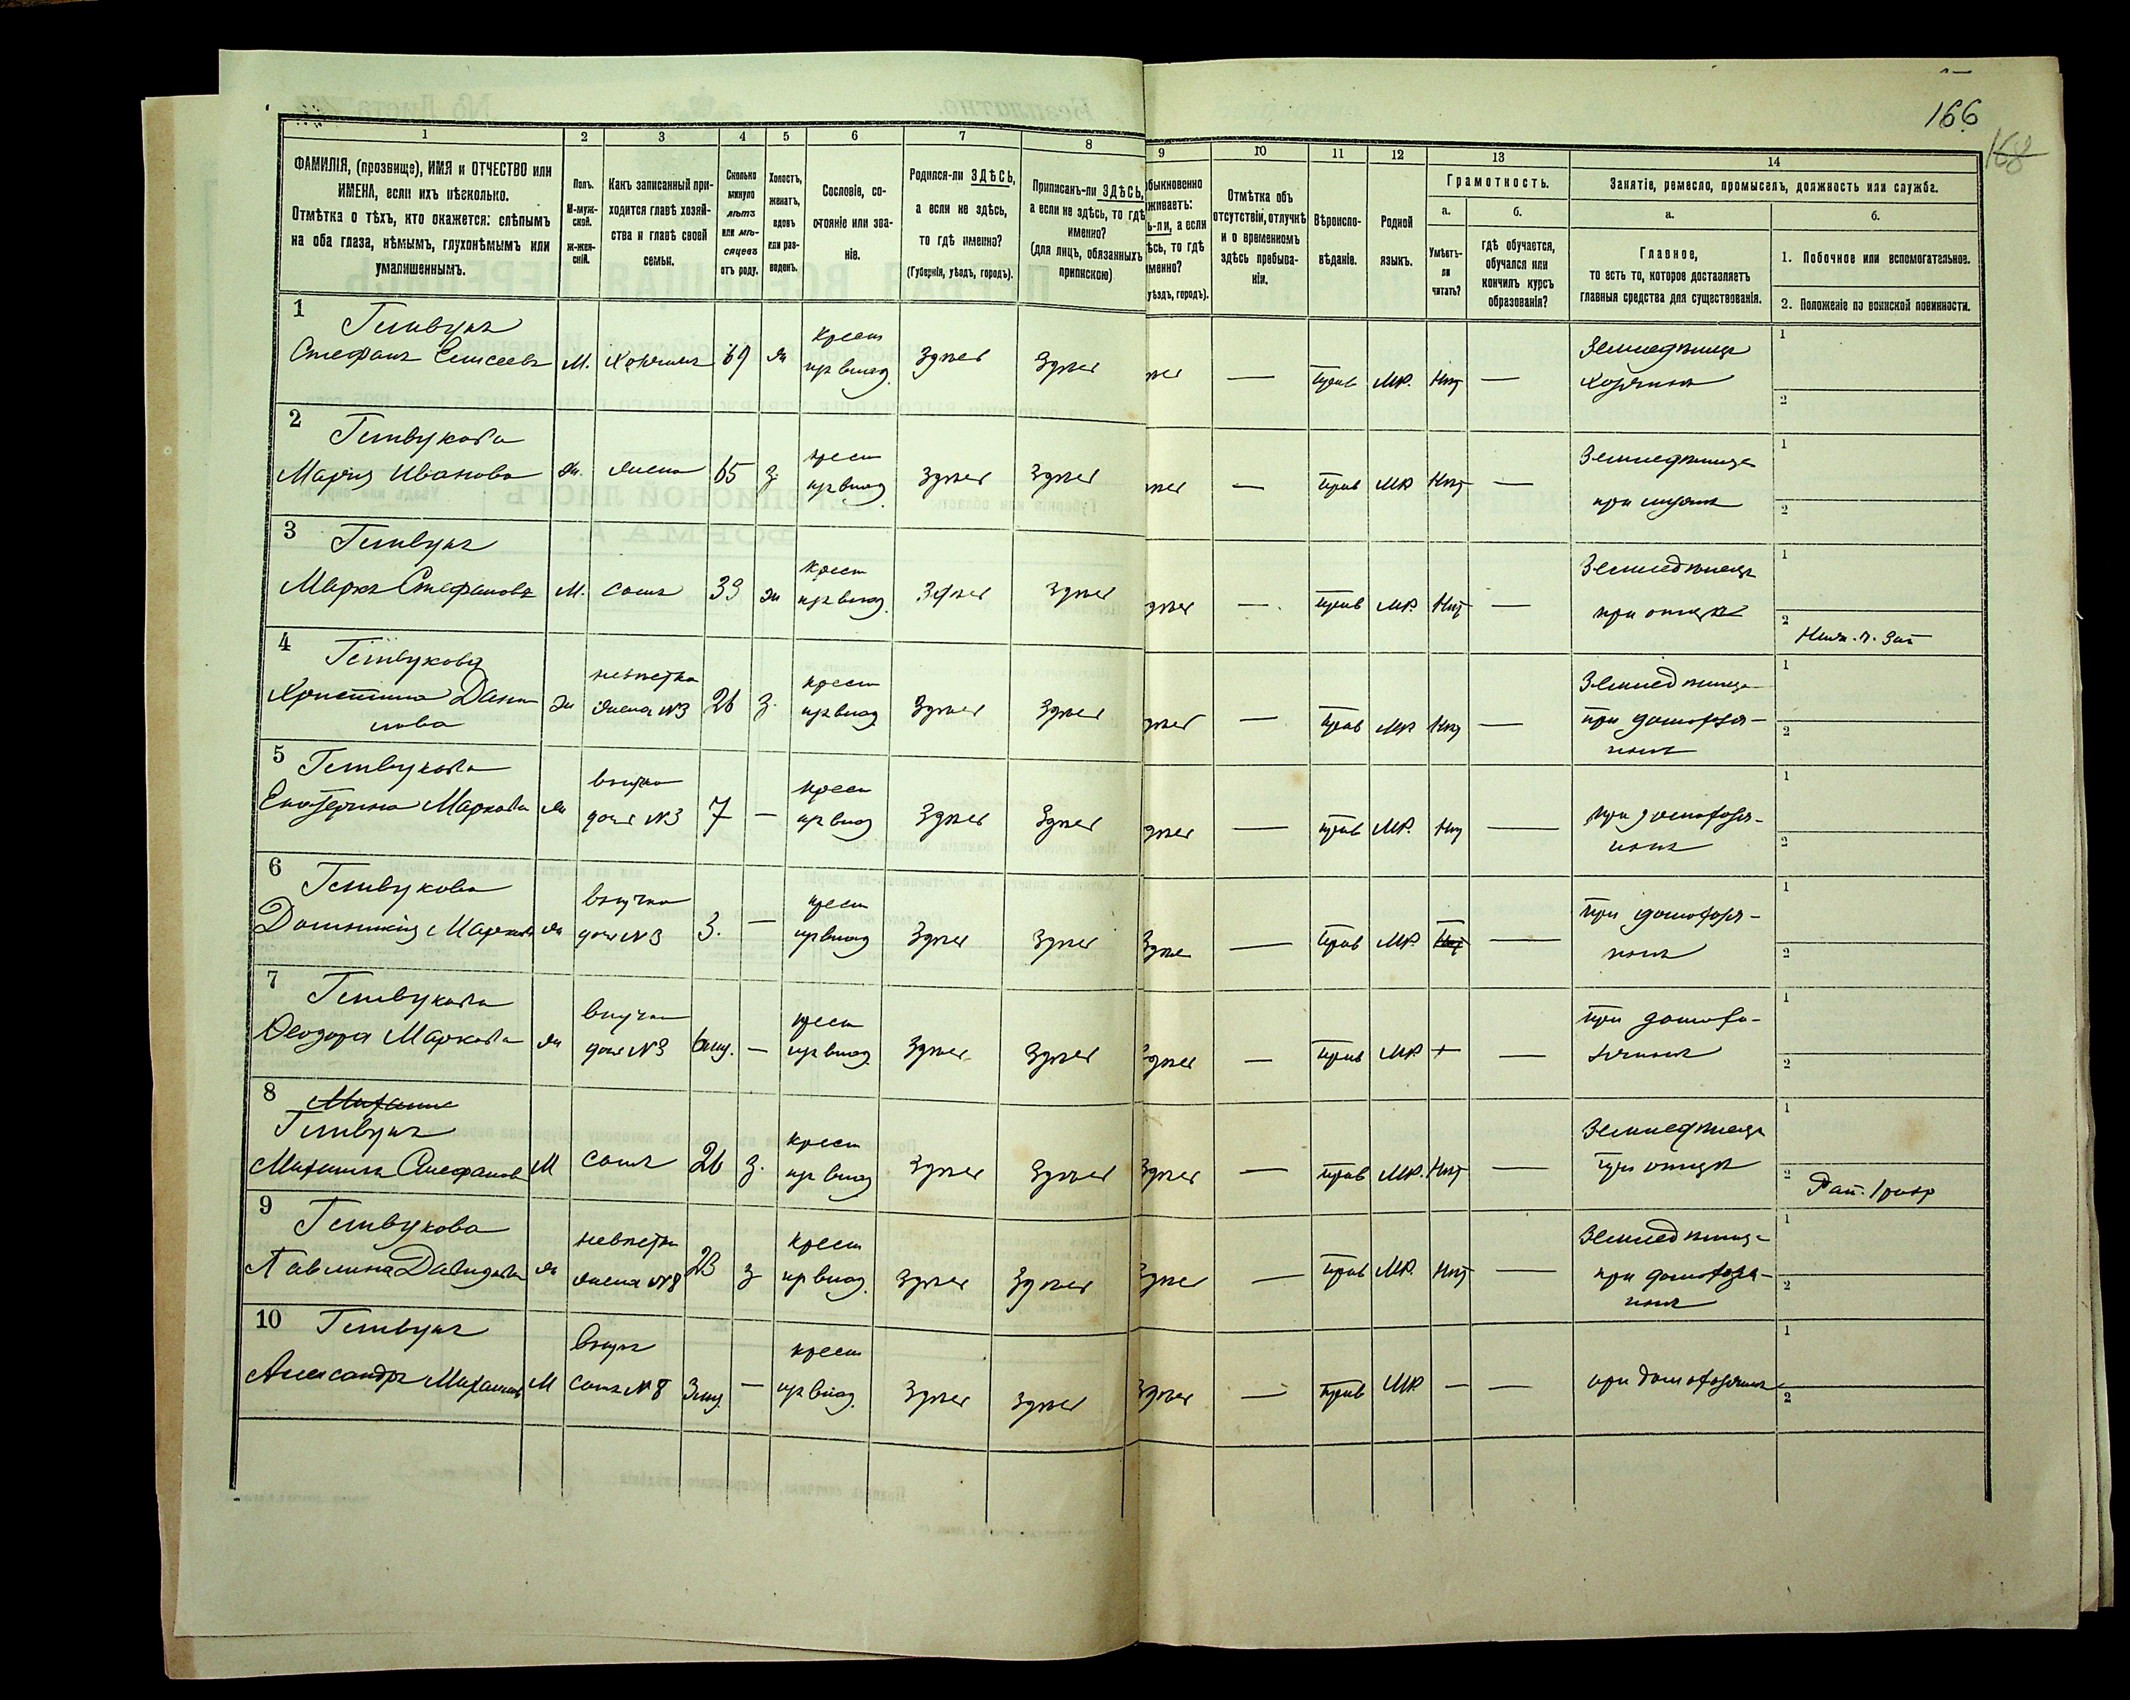 166
168
1 2 3 4 5 6 7 8 9 10 11 12 13 14
ФАМИЛІЯ, (прозвище), ИМЯ и ОТЧЕСТВО или
ИМЕНА, если ихъ нѣсколько.
Отмѣтка о тѣхъ, кто окажется: слѣпымъ
на оба глаза, нѣмымъ, глухонѣмымъ или
умалишеннымъ.
Полъ.
М-муж-
ской.
ж-жен-
скій.
Какъ записанный при-
ходится главѣ хозяй-
ства и главѣ своей
семьи.
Сколько
минуло
лѣтъ
или мѣ-
сяцевъ
отъ роду.
Холостъ,
женатъ,
вдовъ
или раз-
веденъ.
Сословіе, со-
стояніе или зва-
ніе.
Родился-ли ЗДѢСЬ,
а если не здѣсь,
то гдѣ именно?
(Губернія, уѣздъ, городъ).
Приписанъ-ли ЗДѢСЬ,
а если не здѣсь, то гдѣ
именно?
(для лицъ, обязанныхъ
припискою)
быкновенно
живаетъ:
ь-ли, а если
ѣсь, то гдѣ
менно?
уѣздъ, городъ).
Отмѣтка объ
отсутствіи, отлучкѣ
и о временномъ
здѣсь пребыва-
ніи.
Вѣроиспо-
вѣданіе.
Родной
языкъ.
Грамотность.
а.
Умѣетъ-
ли
читать?
б.
гдѣ обучается,
обучался или
кончилъ курсъ
образованія?
Занятіе, ремесло, промыселъ, должность или служба.
а.
Главное,
то есть то, которое доставляетъ
главныя средства для существованія.
б.
1. Побочное или вспомогательное.
2. Положеніе по воинской повинности.
1
Стефанъ Елисеевъ М. Хозяинъ 69 ж
крест
из влад. здѣсь здѣсь — Прав МР. Нѣт —
Земледѣлецъ
хозяинъ
1
2
2
Мария Иванова ж. жена 65 з.
крест
из влад. здѣсь здѣсь — Прав МР. Нѣт —
Земледѣлица
при мужѣ
1
2
3
Марко Стефановъ М. сынъ 39 ж
крест
из влад. здѣсь здѣсь — Прав МР. Нѣт —
Земледѣлецъ
при отцѣ
1
2
4
Христина Дани
лова ж
невѣстка
жена №3 26 з.
крест
из влад здѣсь здѣсь — Прав МР. Нѣт —
Земледѣлица
при домохозя-
инѣ
1
2
5
Екатерина Маркова ж
внучка
дочь №3 7 —
крест
из влад здѣсь здѣсь — Прав МР. Нѣт —
при домохозя-
инѣ
1
2
6
Домникія Маркова ж
внучка
дочь №3 3. —
крест
из влад здѣсь здѣсь — Прав МР. —
При домохозя-
инѣ
1
2
7
Ѳеодора Маркова ж
внучка
дочь №3 6 мц. —
крест
из влад здѣсь здѣсь — Прав МР + —
При домохо-
зяинѣ
1
2
8
Михаилъ Стефановъ М сынъ 26 з.
крест
из влад здѣсь здѣсь — Прав МР. Нѣт —
Земледѣлецъ
При отцѣ
1
2
9
Павлина Давидова ж
невѣстка
жена №8 23 з
крест
из влад. здѣсь здѣсь — Прав МР. Нѣт —
Земледѣлица
при домохозя-
инѣ
1
2
10
Александръ Михаиловъ М
внукъ
сынъ №8 3 мц —
крест
из влад. здѣсь здѣсь — Прав МР — —
при домохозяинѣ
1
2